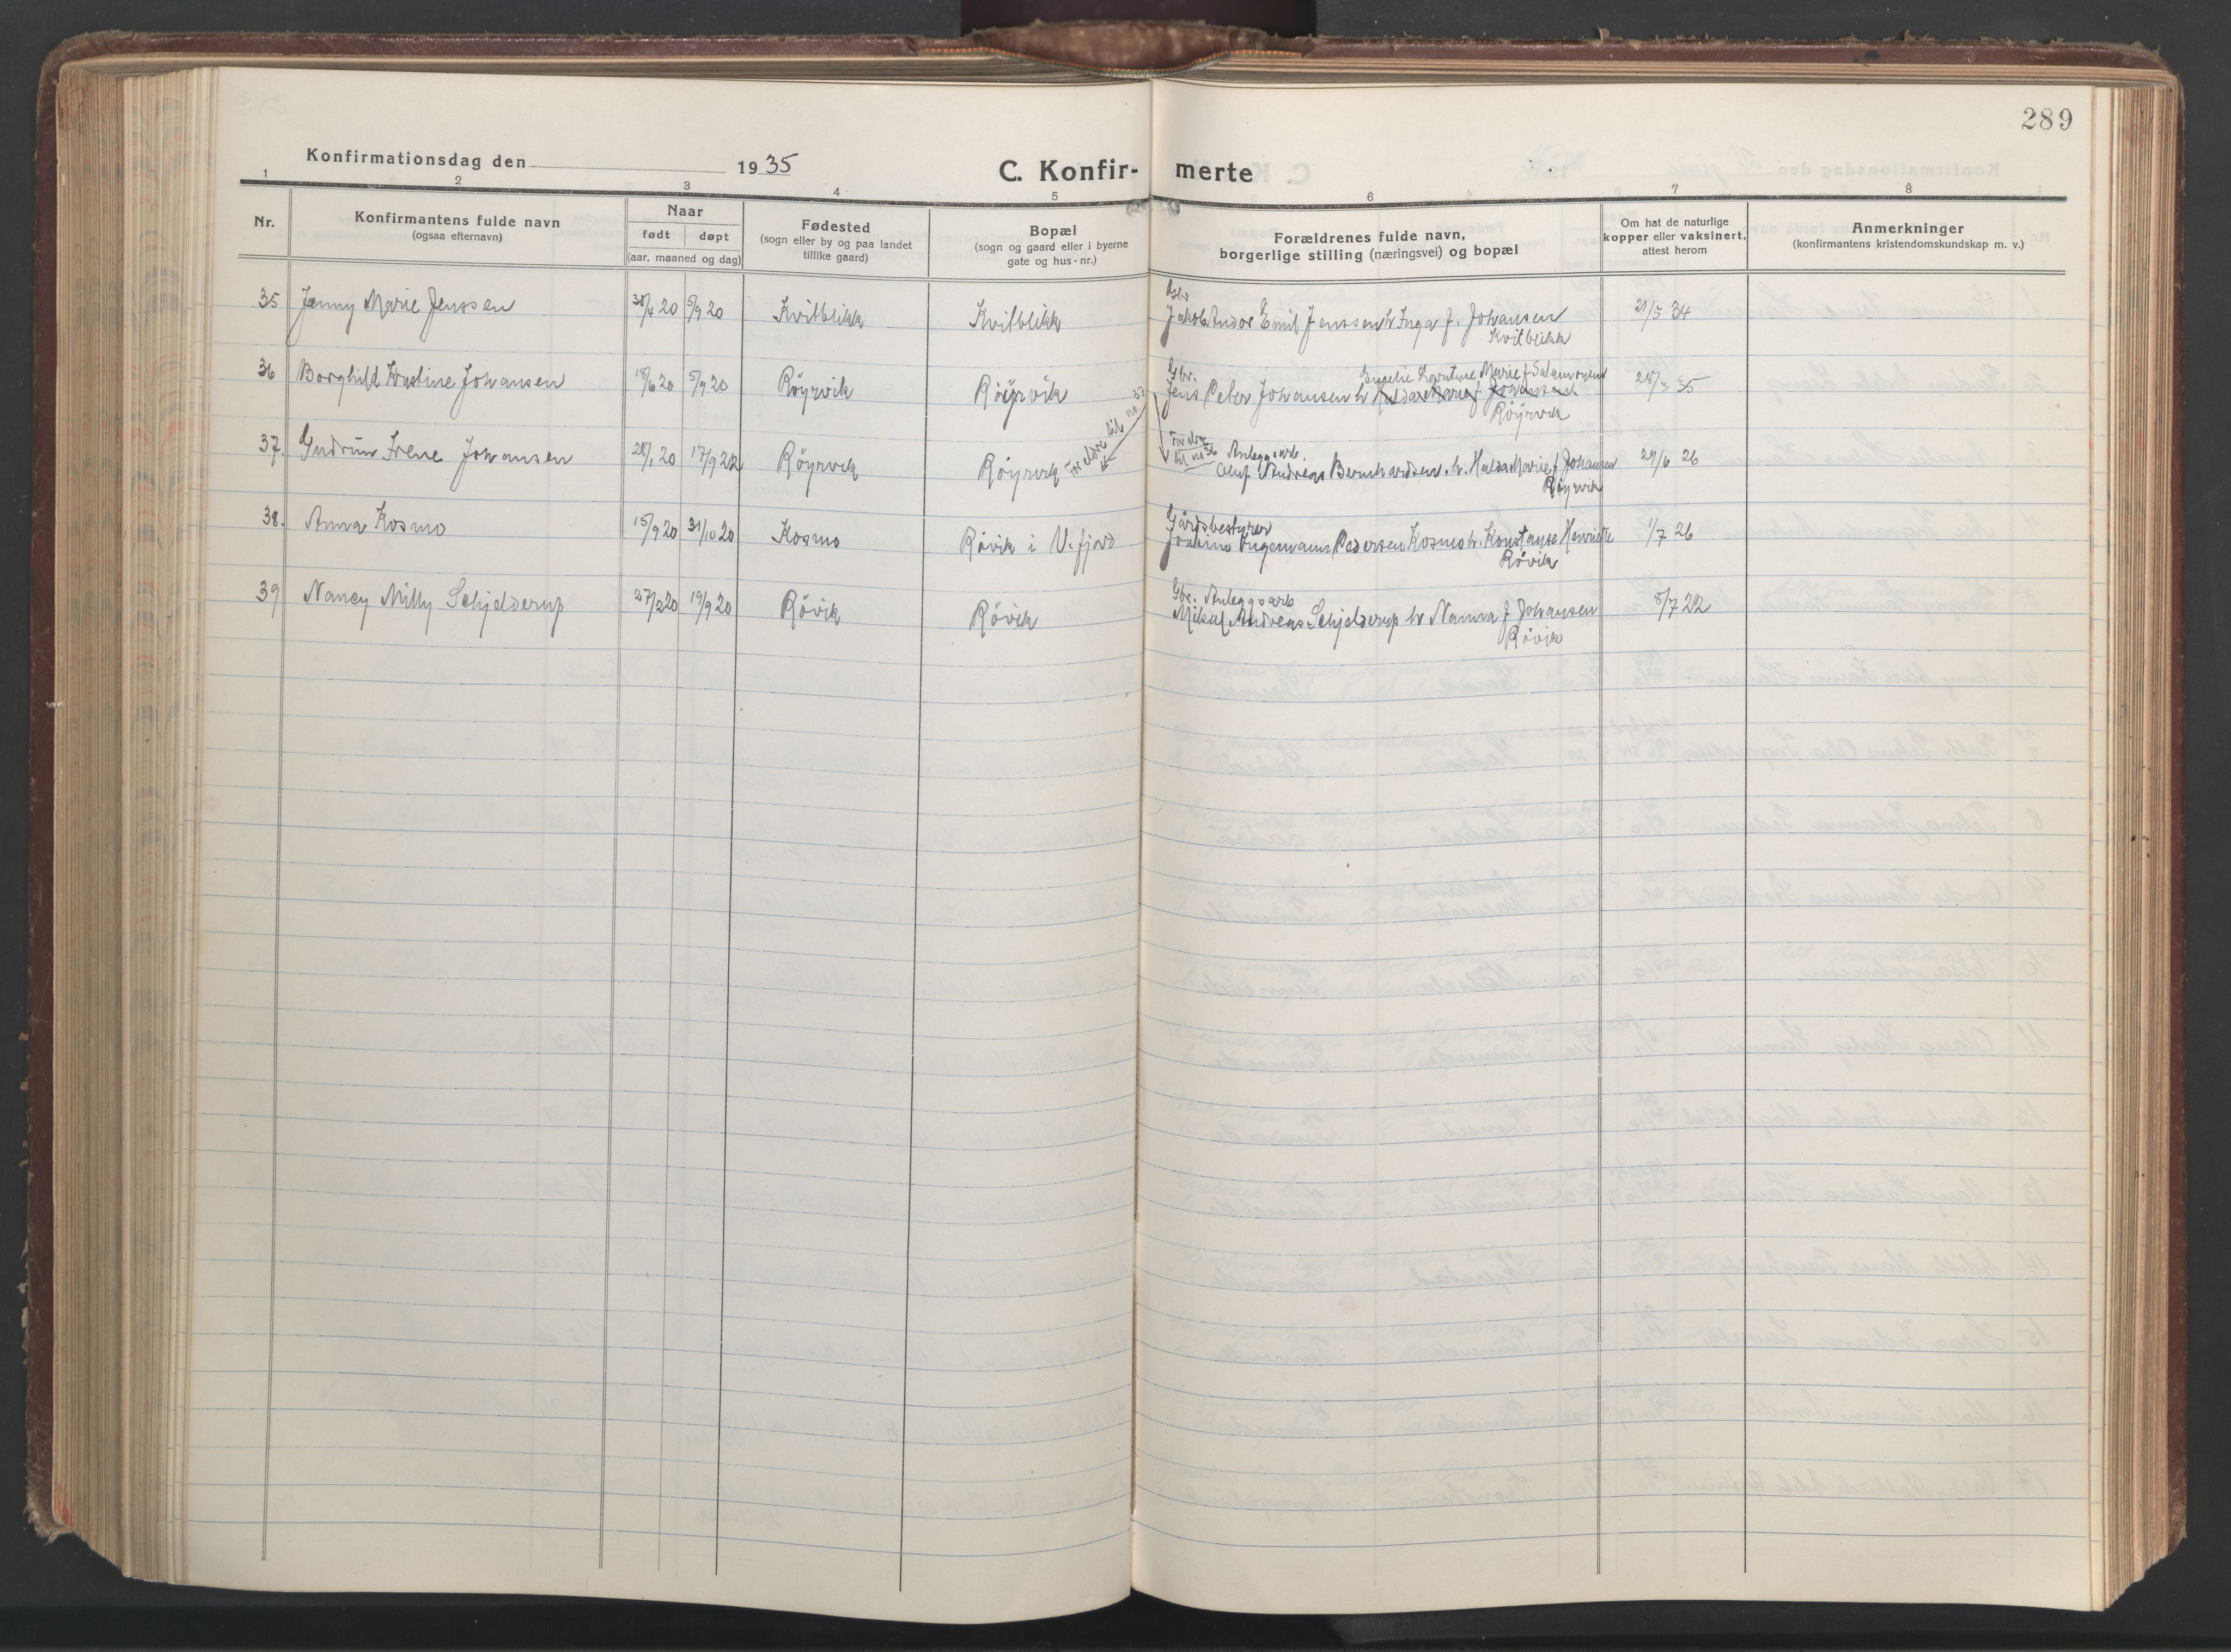 289
Konfirmationsdag den 1935
C. Konfir- merte
1 2 3 4 5 6 7 8
Nr.
Konfirmantens fulde navn
(ogsaa efternavn)
Naar
født døpt
(aar, maaned og dag)
Fødested
(sogn eller by og paa landet
tillike gaard)
Bopæl
(sogn og gaard eller i byerne
gate og hus-nr.)
Forældrenes fulde navn,
borgerlige stilling (næringsvei) og bopæl
Om hat de naturlige
kopper eller vaksinert,
attest herom
Anmerkninger
(konfirmantens kristendomskundskap m. v.)
35 Jenny Marie Jenssen 20 5/9 20 Kvitblikk Kvitblikk
Jakob Andor Emil Jenssen h Inga f. Johansen 21/5 34
Kvitblikk
Gbr. Marie f. Salamonsen
36 Borghild Kristine Johansen 18/6 20 5/9 20 Röyrvik Röyrvik Jens Peter Johansen h Huldar Marie f Johansen 28/3 35
Röyrvik
Foreldre til no 37
Foreldre
til no 36 Anleggsarb.
37. Gudrun Irene Johansen 28/1 20 17/9 22 Röyrvik Röyrvik Oluf Andreas Bernhardsen. h. Hulda Marie f Johansen 29/6 26
Röyrvik
Gårdsbestyrer
38. Anna Kosmo 15/9 20 31/10 20 Kosmo Rövik i V. fjord Joakim Ingemann Pedersen Kosmo h. Konstanse Henriette 1/7 26
Rövik
Gbr. Anleggsarb
39 Nancy Milly Schjelderup 27/2 20 19/9 20 Rövik Rövik Mikal Andreas Schjelderup h Nanna f Johansen 8/7 22
Rövik